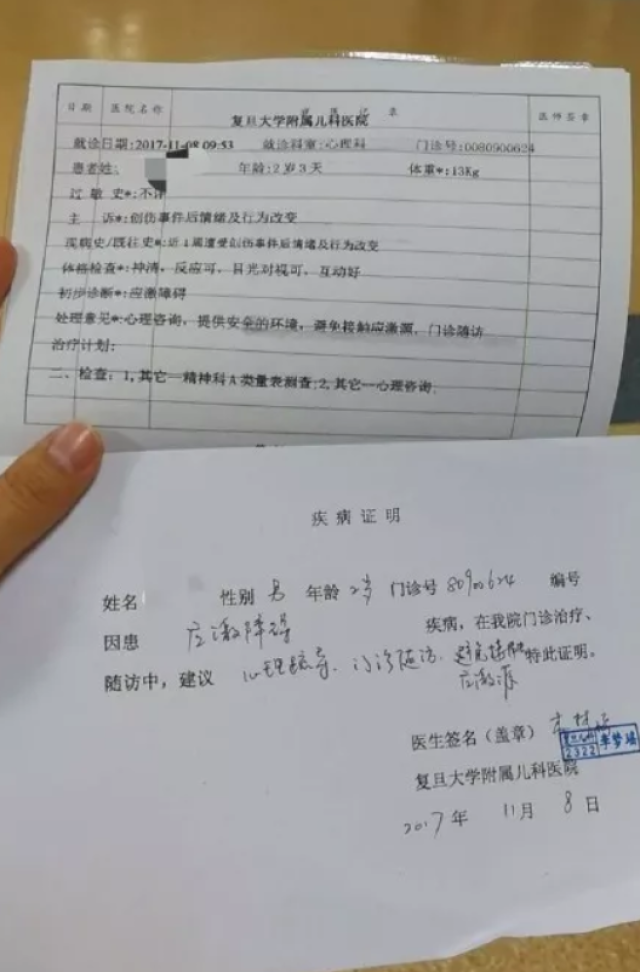 日期 医院名称 记录 医师签章
复旦大学附属儿科医院
就诊日期:2017-11-08 09:53 就诊科室:心理科 门诊号:0080900624
患者姓: 年龄:2岁3天 体重*:13Kg
过敏史*:不详
主 诉*:创伤事件后情绪及行为改变
疾病史/既往史*:近4周遭受创伤事件后情绪及行为改变
体格检查*:神清,反应可,目光对视可,互动好
初步诊断*:应激障碍
处理意见*:心理咨询,提供安全的环境,避免接触应激源,门诊随访
治疗计划:
二、检查:1,其它—精神科A类量表测查;2,其它—心理咨询.
疾病证明
姓名 性别 男 年龄 2岁 门诊号 80900624 编号
因患 应激障碍 疾病,在我院门诊治疗、
随访中,建议 心理疏导、门诊随访、避免接触 特此证明。
应激源
医生签名(盖章)
2322
复旦大学附属儿科医院
2017年 11月 8日